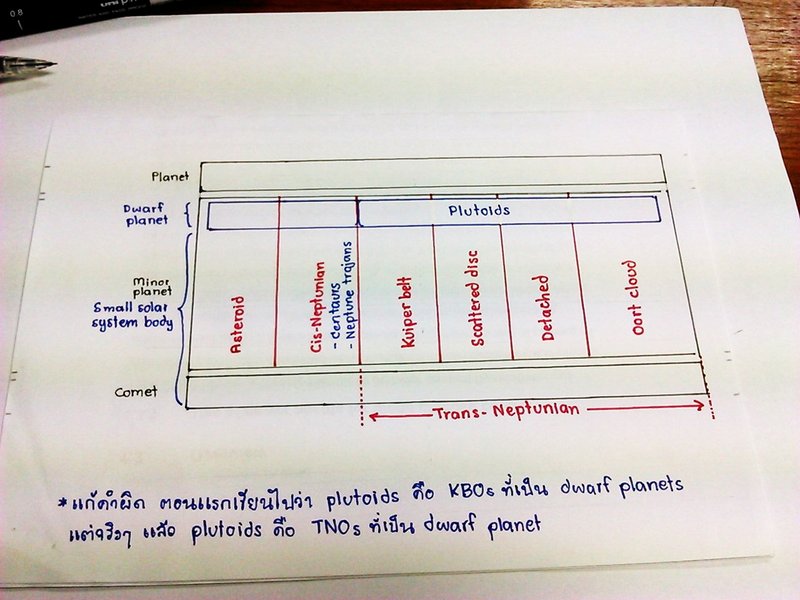 08
uni
Planet
Dwarf
planet
Plutoids
Minor
planet
Small solar
system body
Asteroid
Cis-Neptunian
- Centaurs
- Neptune trojans
Kuiper belt
Scattered disc
Detached
Oort cloud
Comet
Trans-Neptunian
*แก้คำผิด ตอนแรกเขียนไปว่า plutoids คือ KBOs ที่เป็น dwarf planets
แต่จริงๆ แล้ว plutoids คือ TNOs ที่เป็น dwarf planet